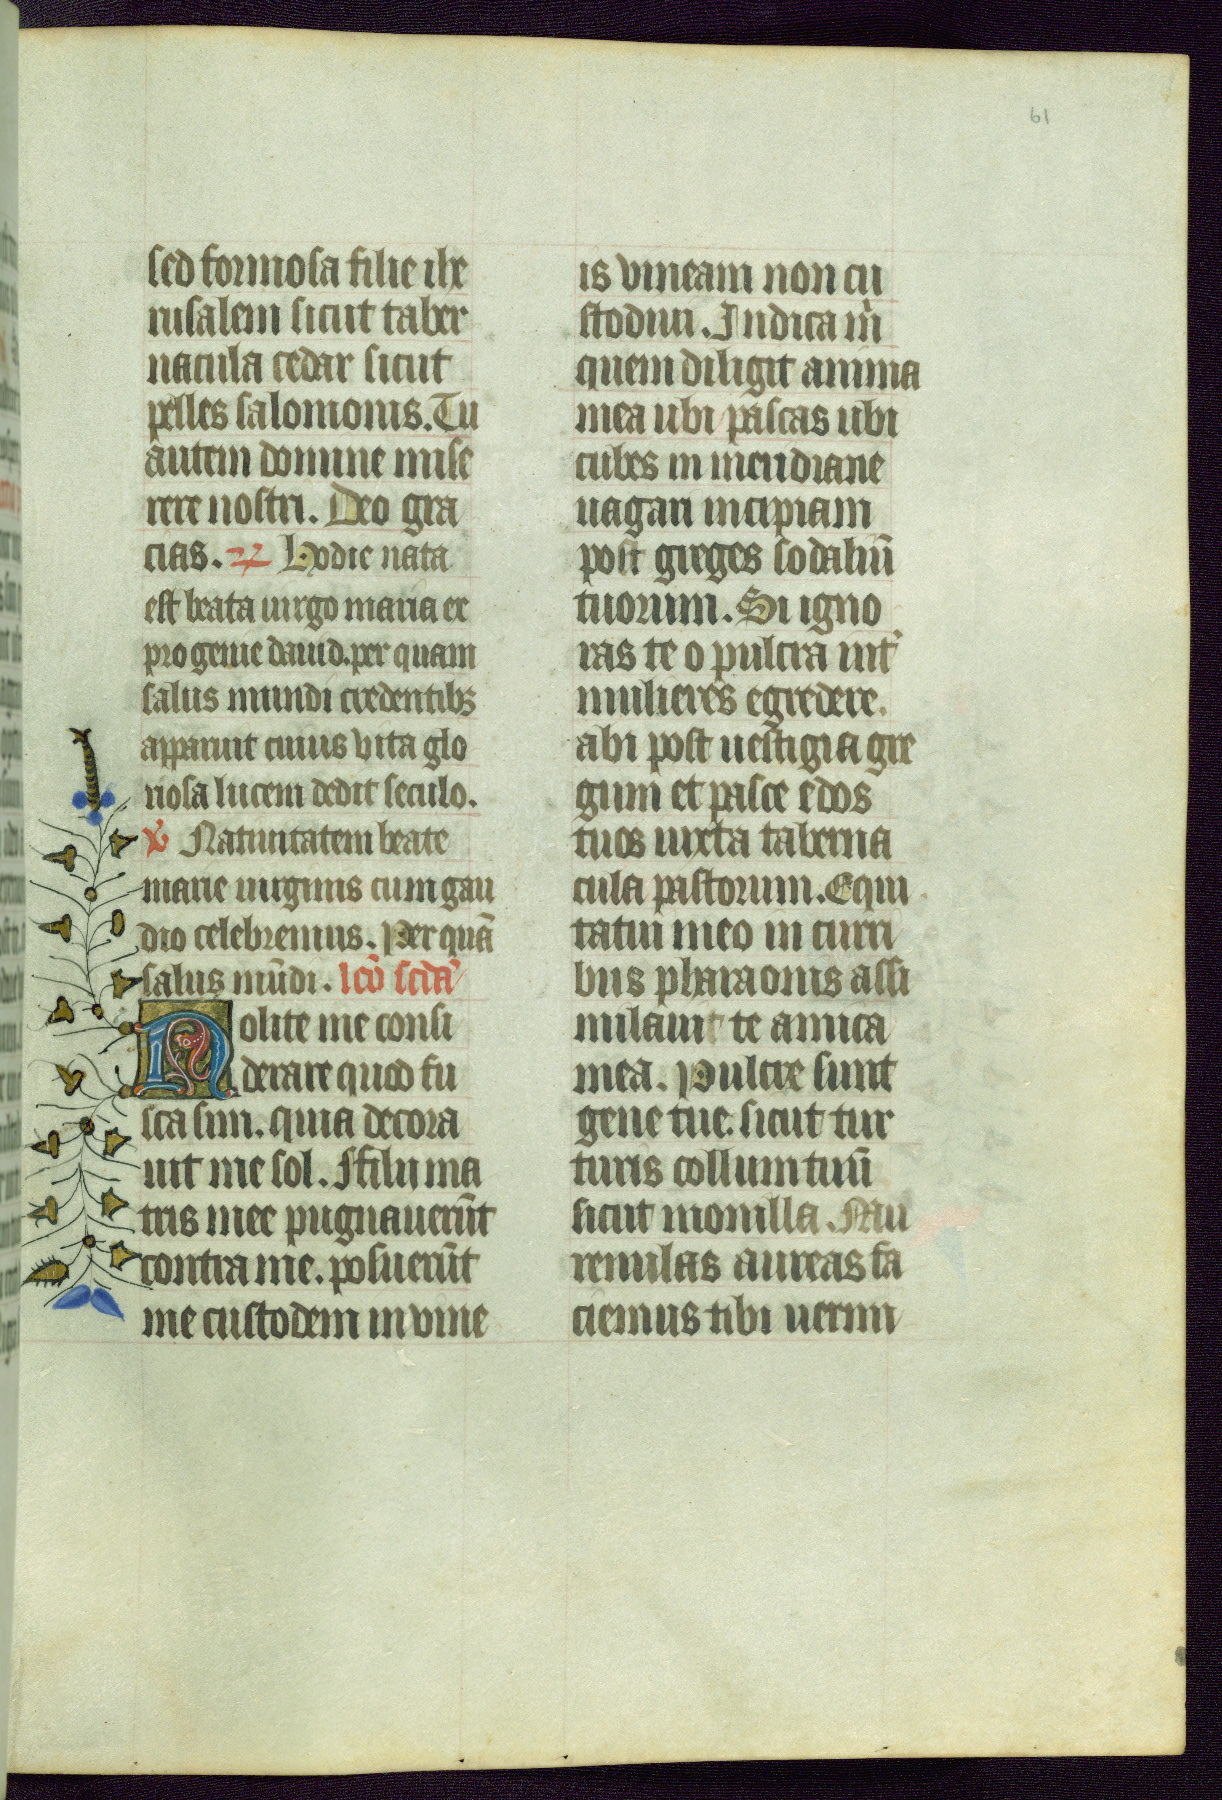 61
sed formosa filie ihe
rusalem sicut taber
nacula cedar sicut
pelles salomonis. Tu
autem domine mise
rere nostri. Deo gra
cias. ℟ Hodie nata
est beata uirgo maria ex
progenie dauid. per quam
salus mundi credentibꝫ
apparuit cuius vita glo
riosa lucem dedit seculo.
℣ Natiuitatem beate
marie uirginis cum gau
dio celebremus. Per quā
salus mūdi. lcō scdaʼ
Nolite me consi
derare quod fu
sca sim. quia decora
uit me sol. Ffilii ma
tris mee pugnauerūt
contra me. posuerūt
me custodem in vine
is vineam non cu
stodiui. Indica m̄
quem diligit anima
mea ubi pascas ubi
cubes in meridiane
uagari incipiam
post greges sodaliū
tuorum. Si igno
ras te o pulcra intʼ
mulieres egredere.
abi post uestigia gre
gum et pasce edos
tuos iuxta taberna
cula pastorum. Equi
tatui meo in curri
bus pharaonis assi
milaui te amica
mea. Pulcre sunt
gene tue. sicut tur
turis collum tuū
sicut monilla. Mu
renulas aureas fa
ciemus tibi uermi